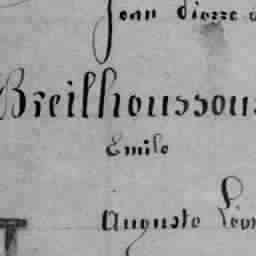 Jean Pierre
Breilhoussous
Emile
Auguste Léon